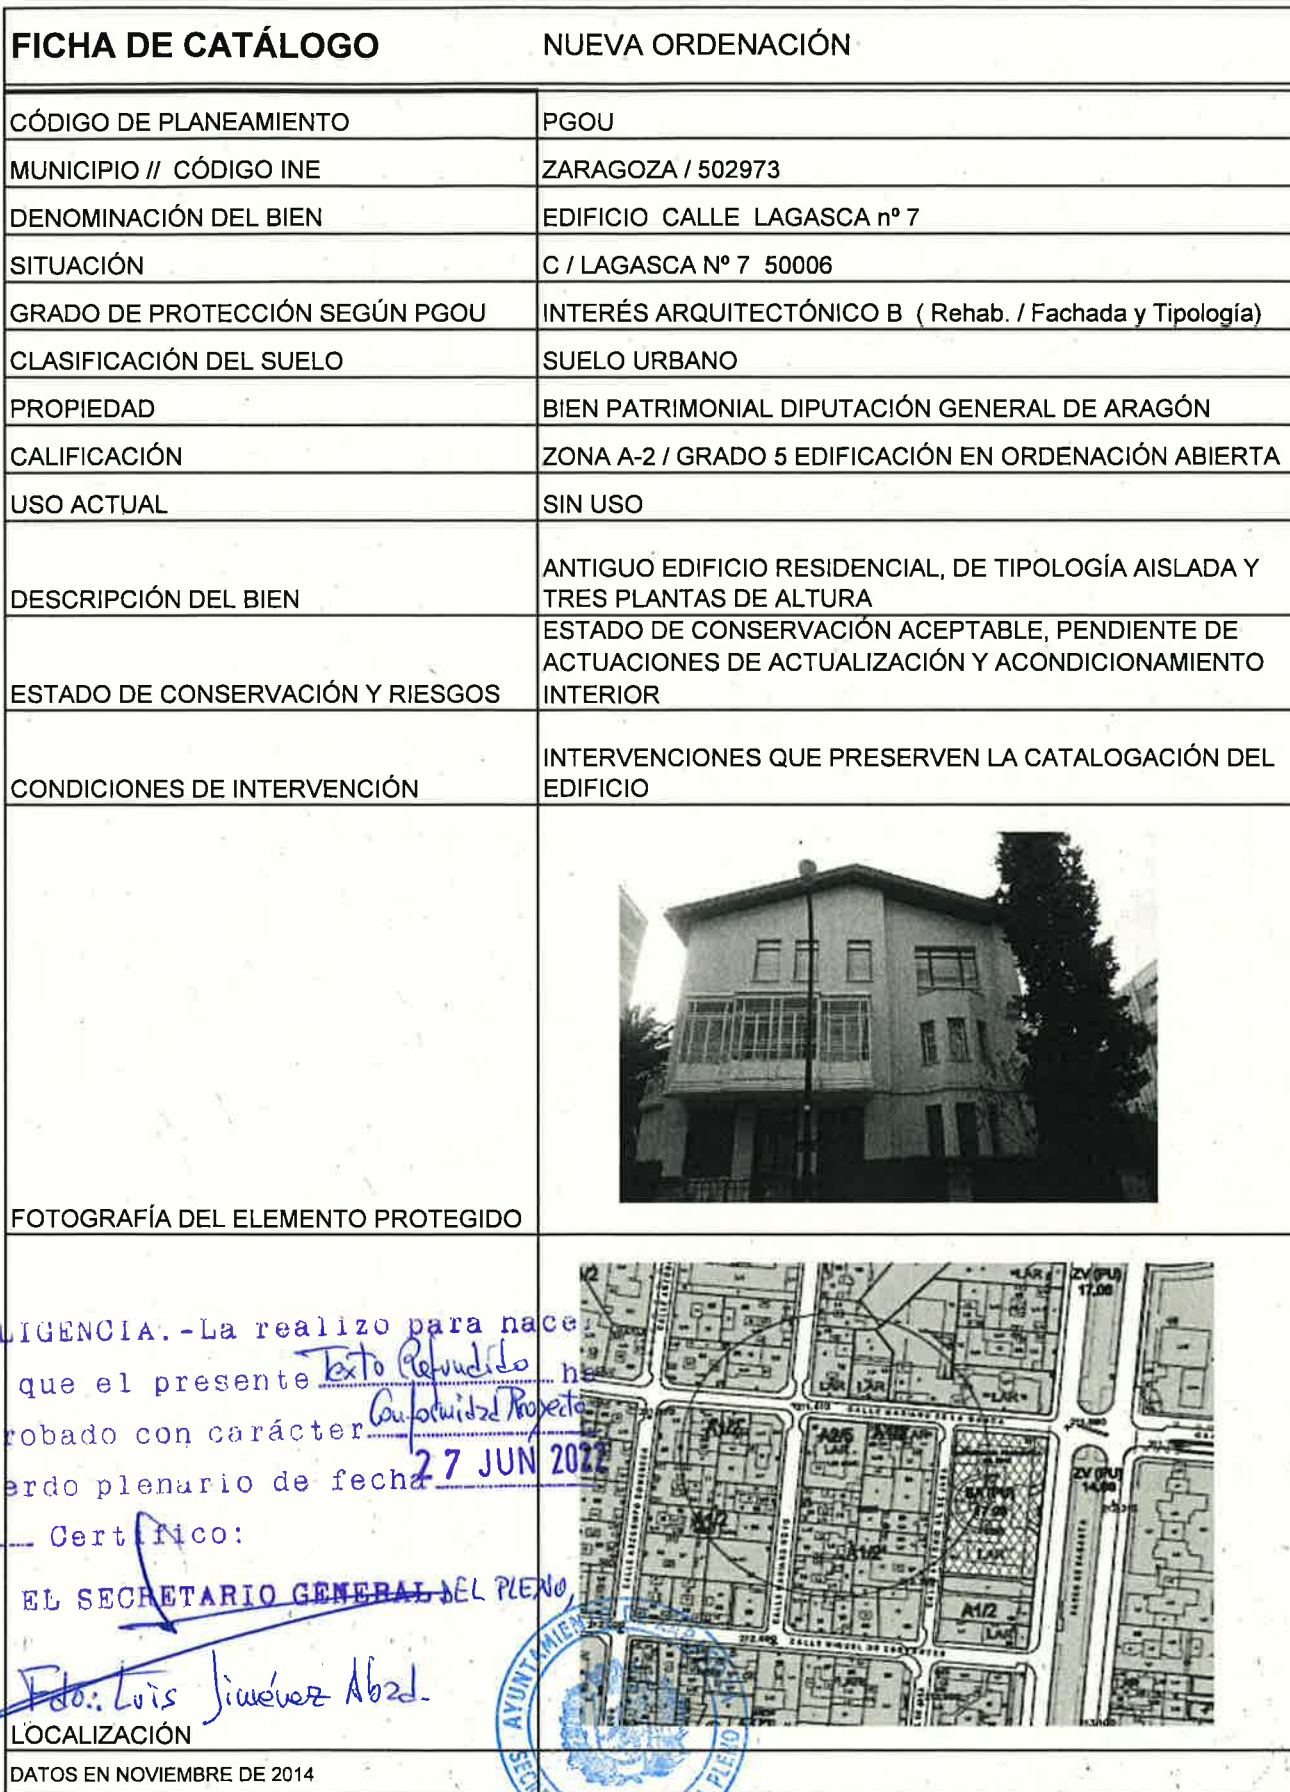 FICHA DE CATÁLOGO NUEVA ORDENACIÓN
CÓDIGO DE PLANEAMIENTO PGOU
MUNICIPIO // CÓDIGO INE ZARAGOZA / 502973
DENOMINACIÓN DEL BIEN EDIFICIO CALLE LAGASCA nº 7
SITUACIÓN C / LAGASCA Nº 7 50006
GRADO DE PROTECCIÓN SEGÚN PGOU INTERÉS ARQUITECTÓNICO B ( Rehab. / Fachada y Tipología)
CLASIFICACIÓN DEL SUELO SUELO URBANO
PROPIEDAD BIEN PATRIMONIAL DIPUTACIÓN GENERAL DE ARAGÓN
CALIFICACIÓN ZONA A-2 / GRADO 5 EDIFICACIÓN EN ORDENACIÓN ABIERTA
USO ACTUAL SIN USO
DESCRIPCIÓN DEL BIEN
ANTIGUO EDIFICIO RESIDENCIAL, DE TIPOLOGÍA AISLADA Y
TRES PLANTAS DE ALTURA
ESTADO DE CONSERVACIÓN Y RIESGOS
ESTADO DE CONSERVACIÓN ACEPTABLE, PENDIENTE DE
ACTUACIONES DE ACTUALIZACIÓN Y ACONDICIONAMIENTO
INTERIOR
CONDICIONES DE INTERVENCIÓN
INTERVENCIONES QUE PRESERVEN LA CATALOGACIÓN DEL
EDIFICIO
FOTOGRAFÍA DEL ELEMENTO PROTEGIDO
LIGENCIA.-La realizo para hace
que el presente Texto Refundido ha
robado con carácter Conformidad Proyecto
erdo plenario de fecha 27 JUN 2022
Certifico:
EL SECRETARIO GENERAL DEL PLENO,
Fdo.: Luis Jiménez Abad.
AYUNTAMIENTO DE ZARAGOZA
PLENO
ZV (PU)
17.08
LAR
A1/2
A2/5
LAR
A1/2
A1/2
ZV (PU)
LAR
A1/2
LAR
LOCALIZACIÓN
DATOS EN NOVIEMBRE DE 2014